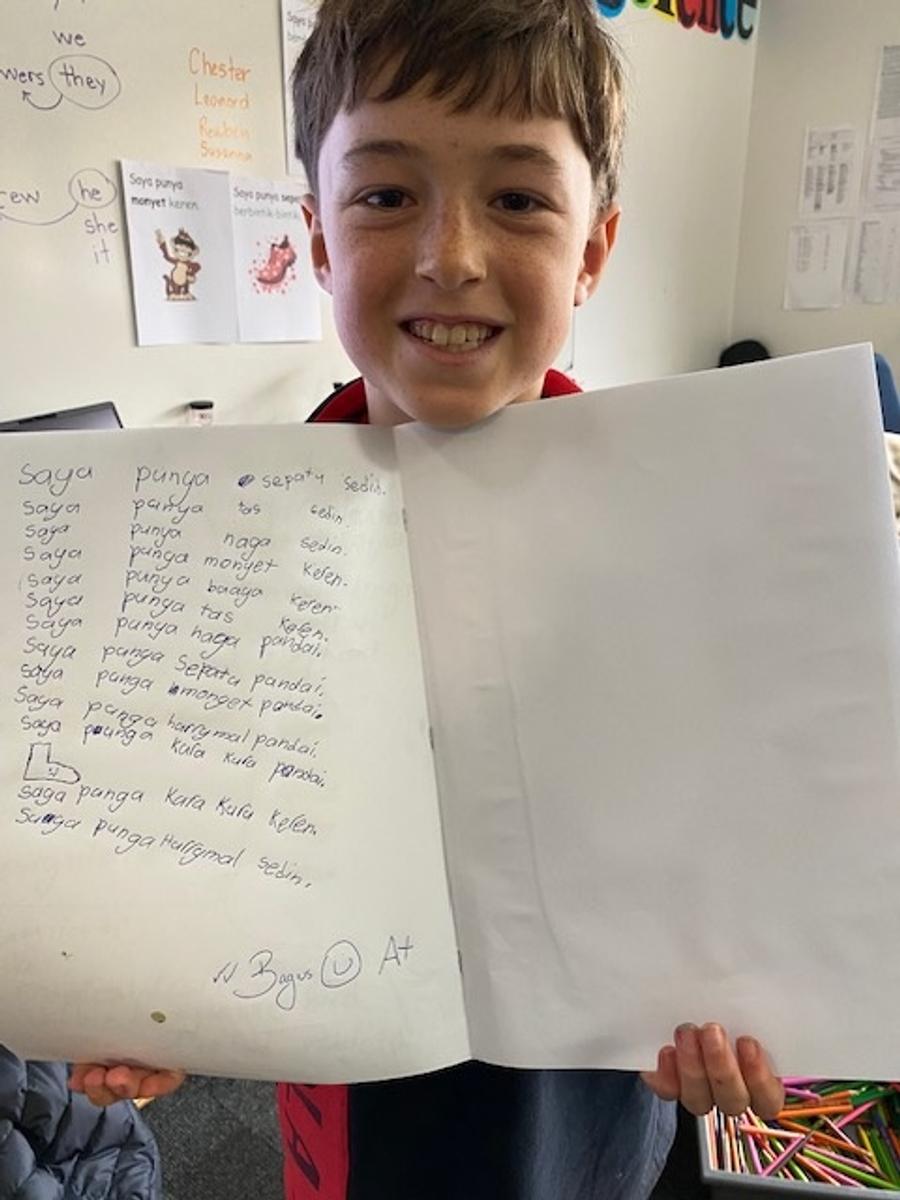 we
wers they
Chester
Leonard
Reuben
Susanna
rew he
she
it
Saya punya
monyet keren.
Saya punya sepa
berbintik-bintik
Saya punya sepatu sedin.
Saya punya tas sedin.
Saya punya naga sedin.
Saya punya monyet keren.
Saya punya buaya keren.
Saya punya tas keren.
Saya punya naga pandai.
Saya punya Sepatu pandai.
saya punya monyet pandai.
Saya punya harrymal pandai.
Saya punya kura kura pandai.
saya punya Kura Kura keren.
Saya punya Harrymal sedin.
Bagus A+